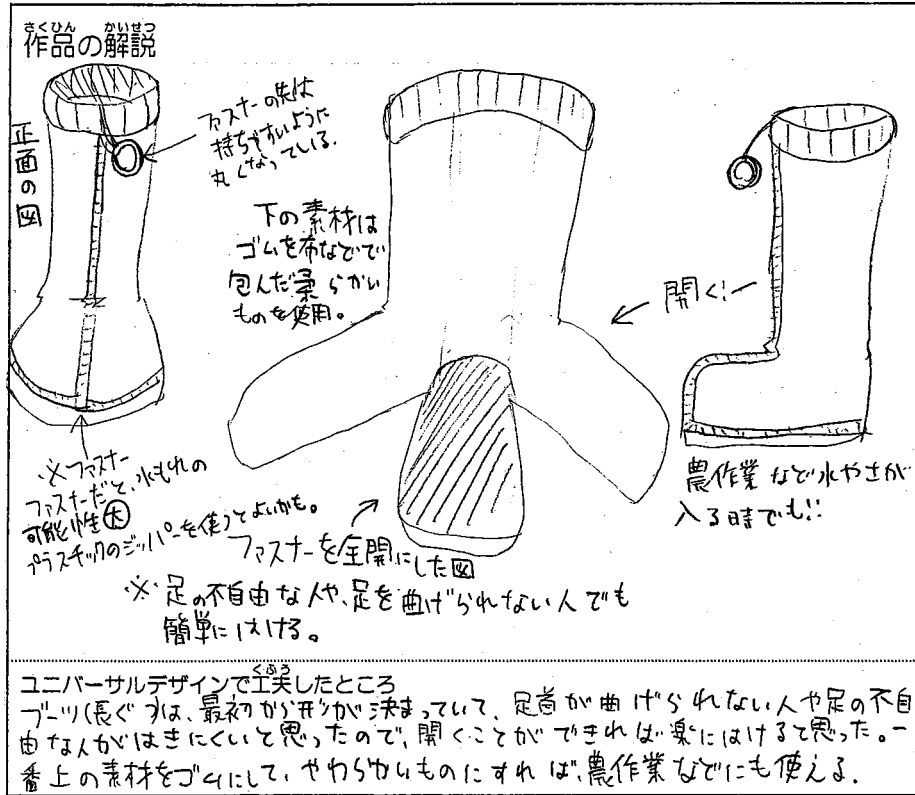 さくひん かいせつ
作品の解説
正面の図
ファスナーの先は
持ちやすいように
丸くなっている。
下の素材は
ゴムを布などで
包んだ柔らかい
ものを使用。
開く!
※ファスナー
ファスナーだと、水もれの
可能性大
プラスチックのジッパーを使うとよいかも。
ファスナーを全開にした図
農作業など水やさが
入る時でも!!
※足の不自由な人や、足を曲げられない人でも
簡単にはける。
くふう
ユニバーサルデザインで工夫したところ
ブーツ(長ぐつ)は、最初から形が決まっていて、足首が曲げられない人や足の不自
由な人がはきにくいと思ったので、開くことができれば楽にはけると思った。一
番上の素材をゴムにして、やわらかいものにすれば、農作業などにも使える.